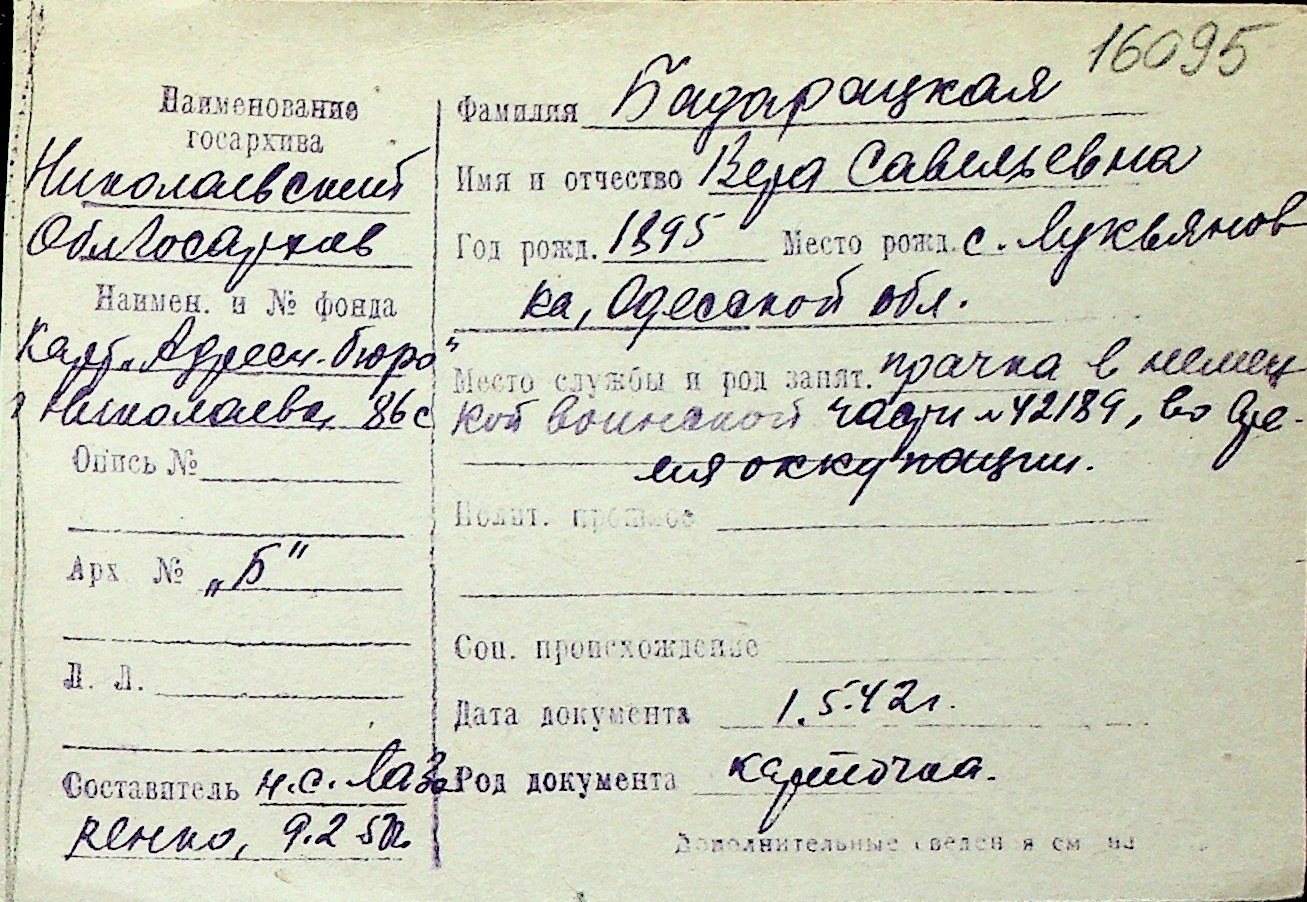 16095
Наименование
госархива
Николаевский
Облгосархив
Наимен. и № фонда
Карт. „Адресн. бюро"
г. Николаева, 86с
Опись №
Арх. № „Б"
Л. Л.
Составитель н.с. Лаза
ренко, 9.2
Фамилия Бадарацкая
Имя и отчество Вера Савельевна
Год рожд. 1895 Место рожд. с. Лукьянов
ка, Одесской обл.
Место службы и род занят. прачка в немец
кой воинской части №42189, во вре-
мя оккупации.
Полит. прошлое
Соц. происхождение
Дата документа 1.5.42г.
Род документа карточка.
Дополнительные сведения см на